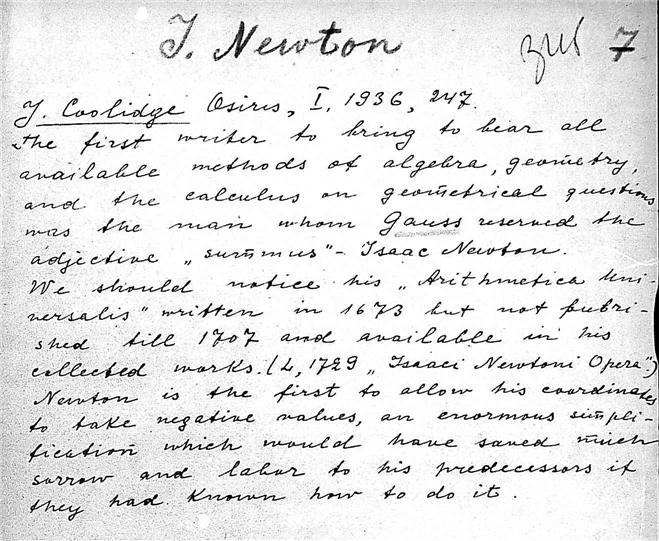 I. Newton 7
J. Coolidge Osiris, I, 1936, 247.
The first writer to bring to bear all
available methods of algebra, geometry,
and the calculus on geometrical questions
was the man whom Gauss reserved the
adjective „summus" - Isaac Newton.
We should notice his „Arithmetica Uni-
versalis" written in 1673 but not publi-
shed till 1707 and available in his
collected works. (L, 1729 „Isaaci Newtoni Opera".)
Newton is the first to allow his coordinates
to take negative values, an enormous simpli-
fication which would have saved much
sorrow and labor to his predecessors if
they had known how to do it.